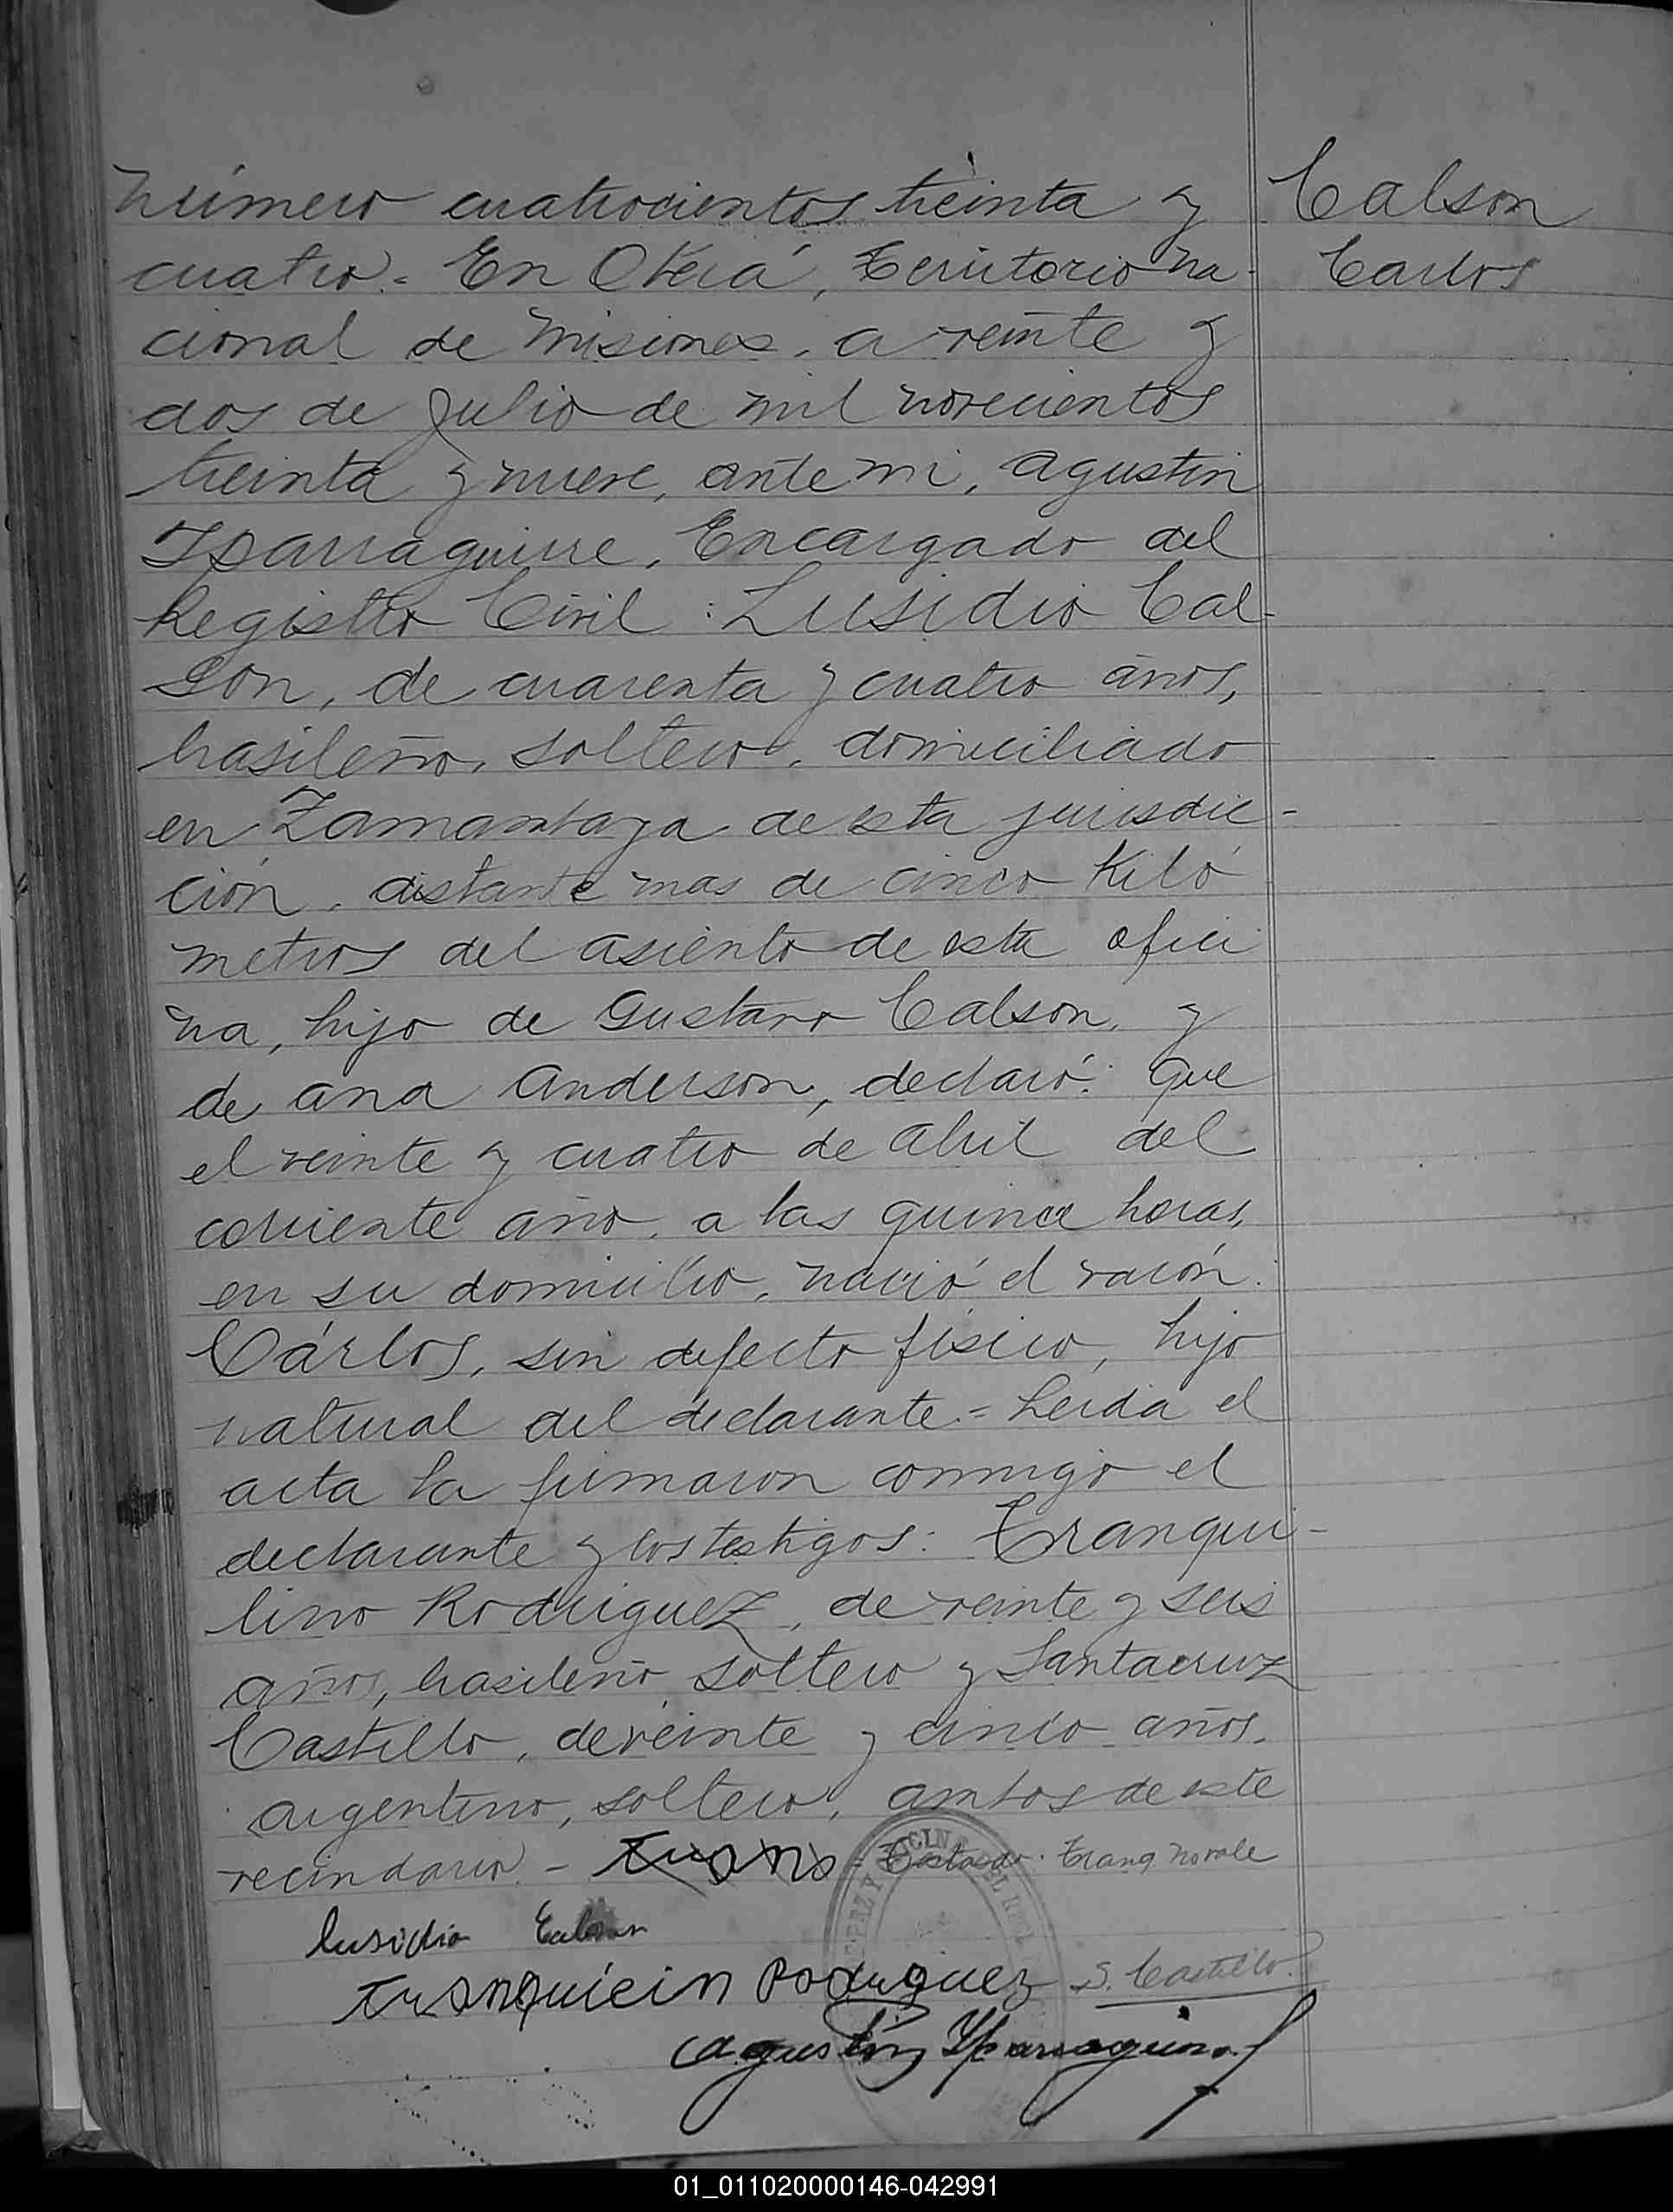 Número cuatrocientos treinta y
cuatro.= En Oberá, Territorio na-
cional de Misiones, a veinte y
dos de Julio de mil novecientos
treinta y nueve, ante mi, Agustin
Yparraguirre, Encargado del
Registro Civil: Lusidio Cal-
son, de cuarenta y cuatro años,
brasileño, soltero, domiciliado
en Zamambaya de esta jurisdic-
ción, distante mas de cinco Kiló
metros del asiento de esta ofici
na, hijo de Gustavo Calson, y
de Ana Anderson, declaró: Que
el veinte y cuatro de Abril del
corriente año, a las quince horas,
en su domicilio, nació el varón:
Cárlos, sin defecto fisico, hijo
natural del declarante.= Leida el
acta la firmaron conmigo el
declarante y los testigos: Tranqui-
lino Rodriguez, de veinte y seis
años, brasileño, soltero y Santacruz
Castillo, de veinte y cinco años,
argentino, soltero, ambos de este
vecindario.- = Testado: Tranq no vale
Calson
Carlos
Lusidio Calson
Rodriguez S. Castillo
Agustin Yparraguirre
01_011020000146-042991